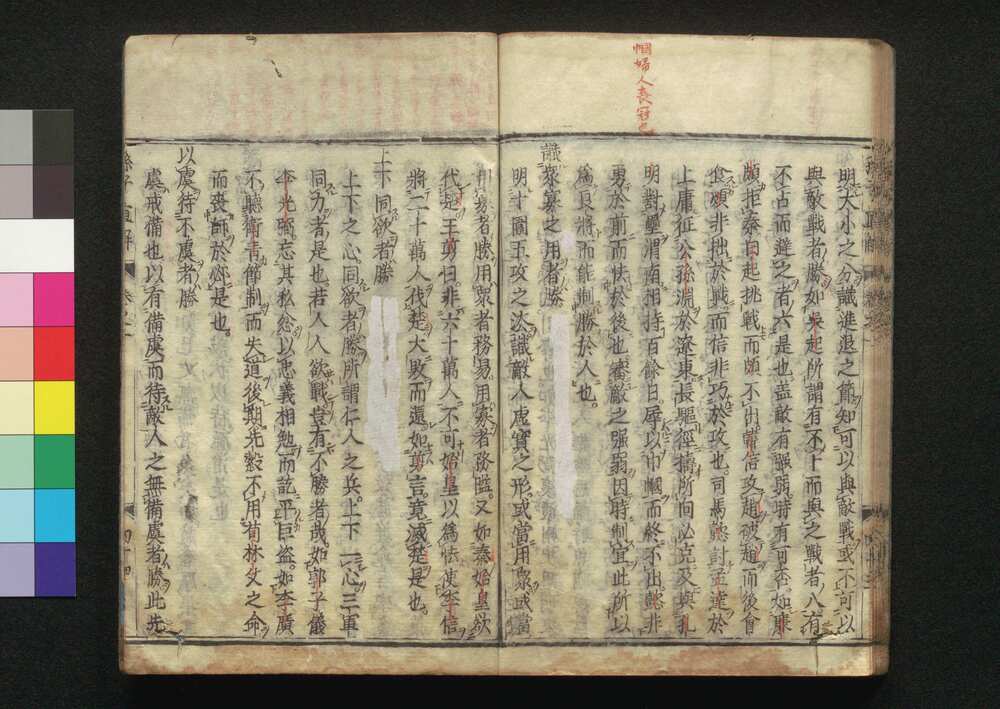 幗婦人喪冠也
明大小之分識進退之節知可以與敵戰或不可以
與敵戰者勝如吳起所謂有不卜而與之戰者八有
不占而避之者六是也蓋敵有强弱時有可否如廉
頗拒秦白起挑戰而頗不出韓信攻趙破趙而後會
食頗非拙於戰而信非巧於攻也司馬懿討孟達於
上庸征公孫淵於遼東長驅徑擣所向必克及與孔
明對壘渭南相持百餘日辱以巾幗而終不出懿非
勇於前而怯於後也審敵之强弱因時制宜此所以
爲良將而能制勝於人也
識衆寡之用者勝
明十圍五攻之法識敵人虛實之形或當用衆或當
用寡者勝用衆者務易用寡者務隘又如秦始皇欲
代楚王翦曰非六十萬人不可始皇以爲怯使李信
將二十萬人伐楚大敗而還如翦言竟滅楚是也
上下同欲者勝
上下之心同欲者勝所謂仁人之兵上下一心三軍
同力者是也若人人欲戰豈有不勝者哉如郭子儀
李光弼忘其私忿以忠義相勉而訖平巨盗如李廣
不聽衛青節制而失道後期先縠不用荀林父之命
而喪師於邲是也
以虞待不虞者勝
虞戒備也以有備虞而待敵人之無備虞者勝此先
孫子直解
卷之上
四十四